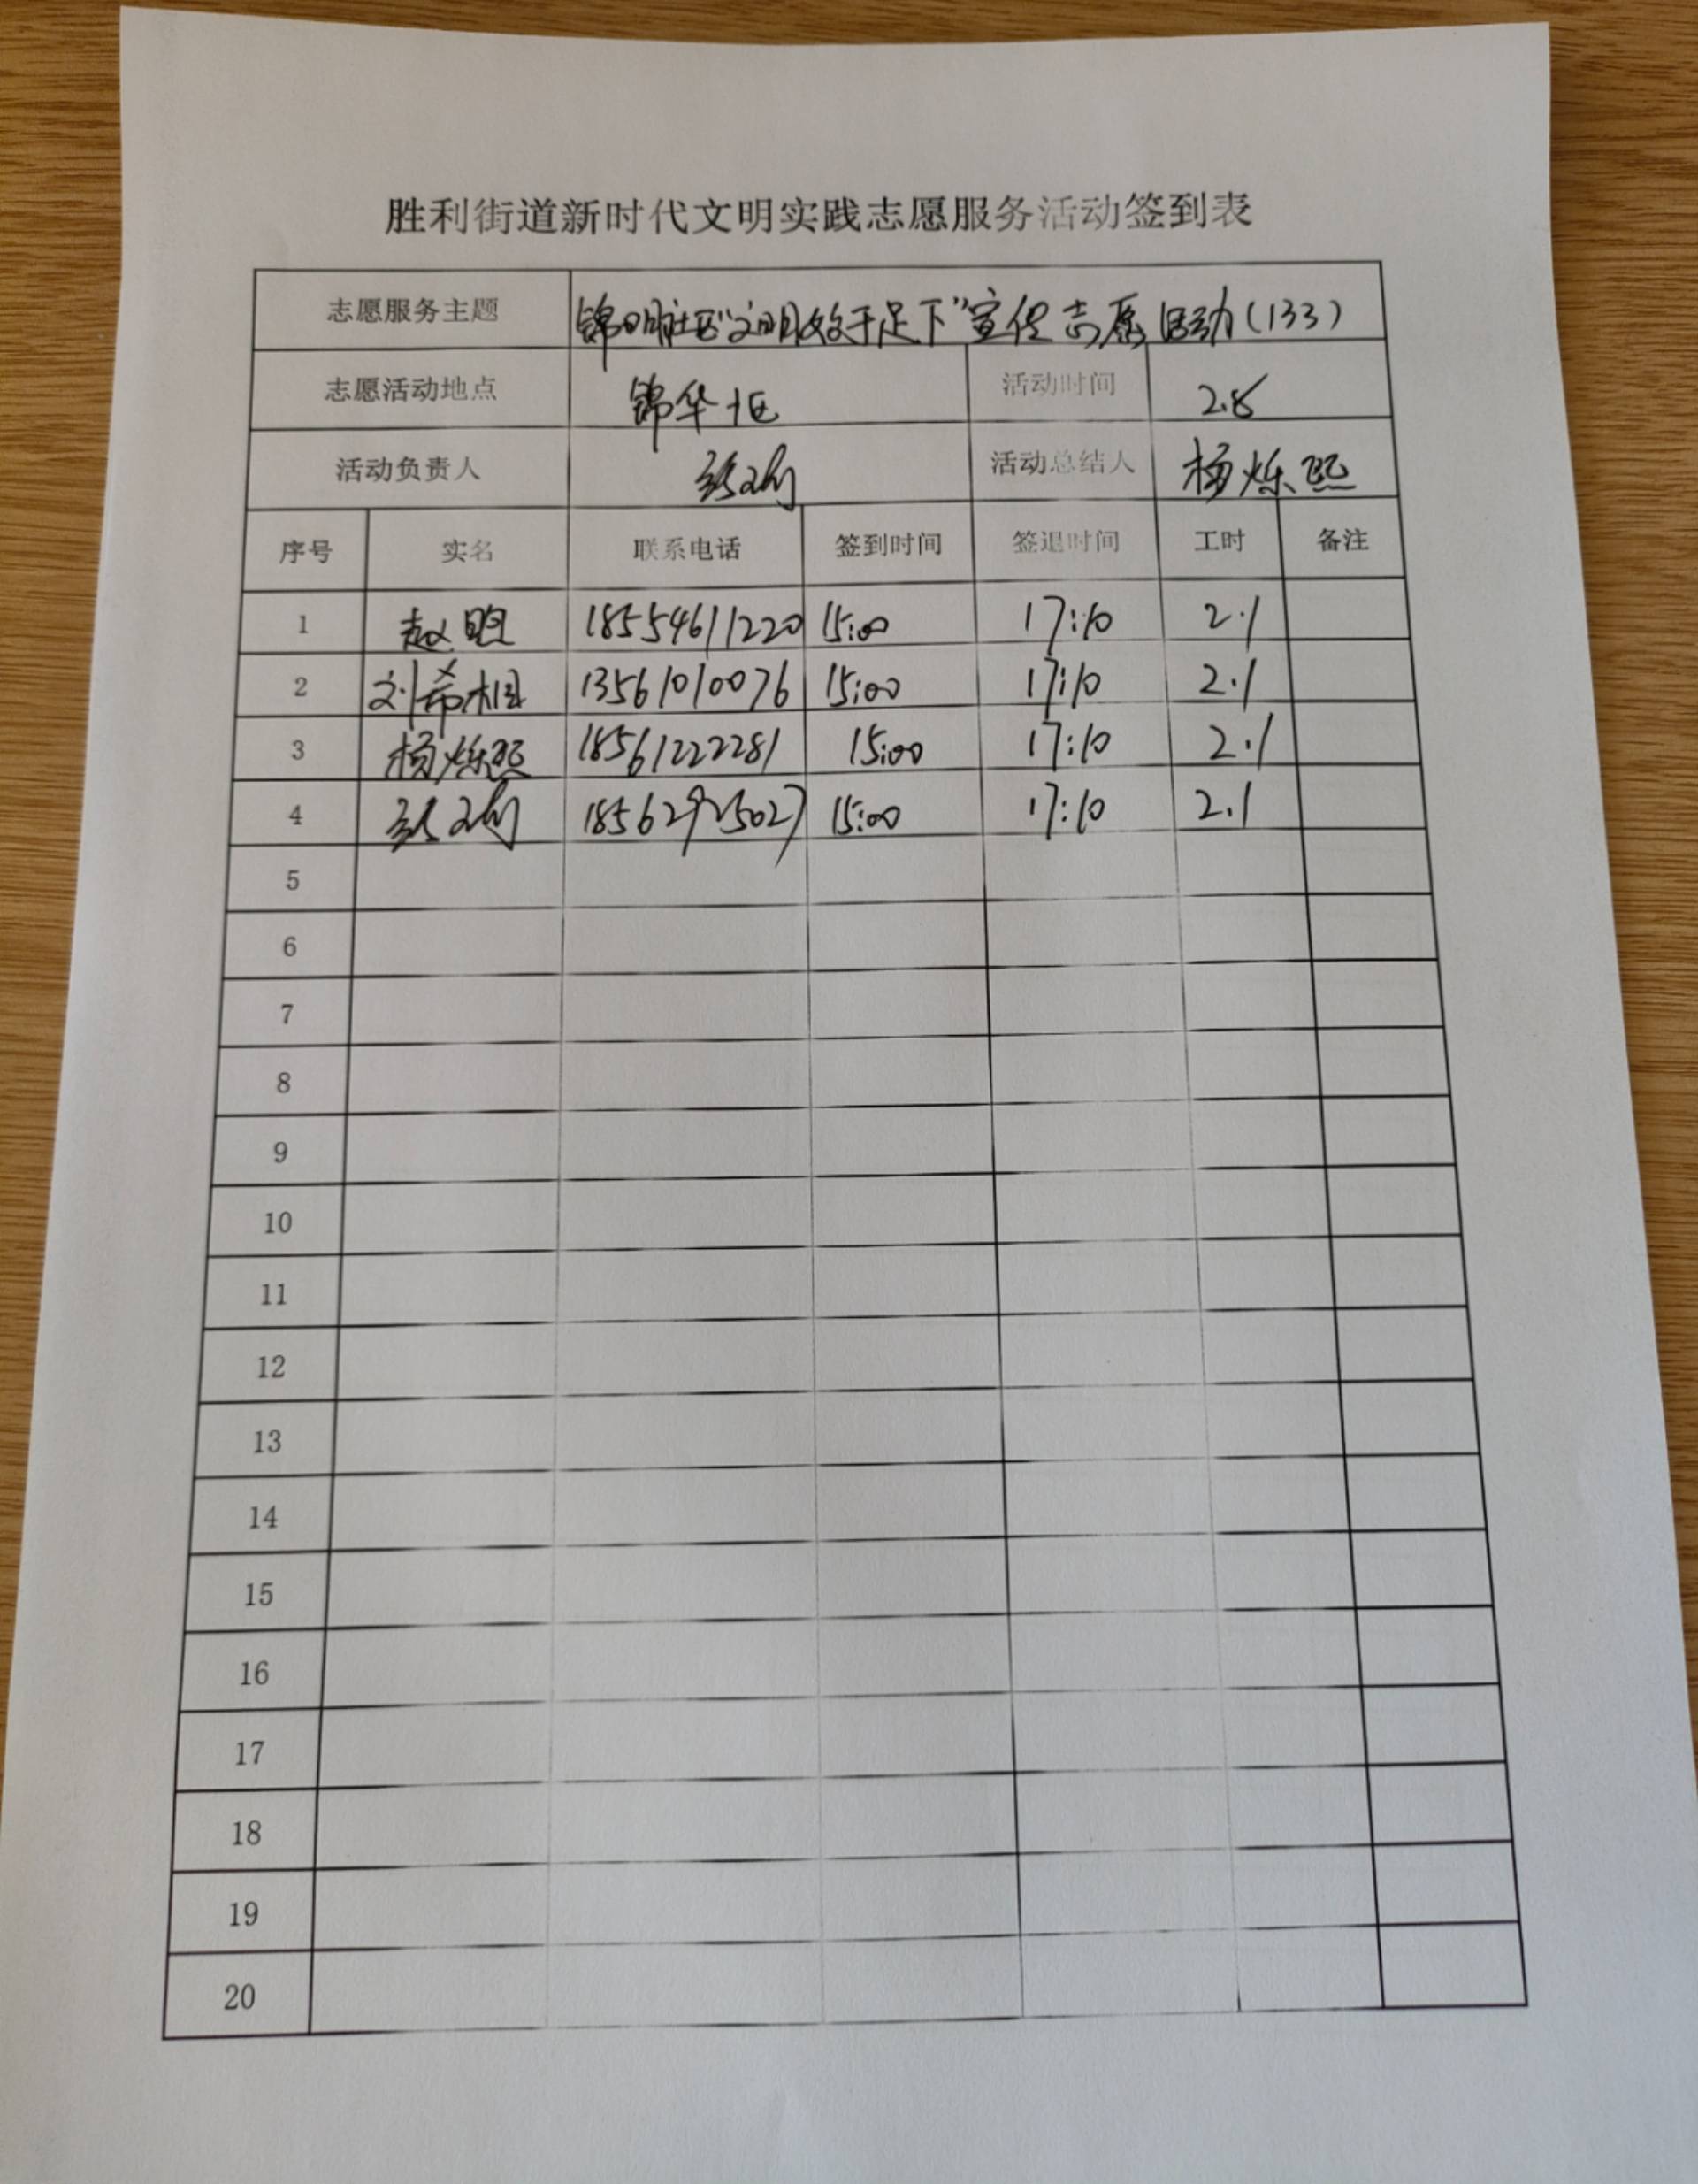 胜利街道新时代文明实践志愿服务活动签到表
志愿服务主题 锦明社区“文明始于足下”宣传志愿活动(133)
志愿活动地点 锦华 区 活动时间 2.8
活动负责人 活动总结人 杨烁熙
序号 实名 联系电话 签到时间 签退时间 工时 备注
1 赵 18554611220 15:00 17:10 2.1
2 刘希相 13561010076 15:00 17:10 2.1
3 杨烁熙 18561222281 15:00 17:10 2.1
4 18562925027 15:00 17:10 2.1
5
6
7
8
9
10
11
12
13
14
15
16
17
18
19
20